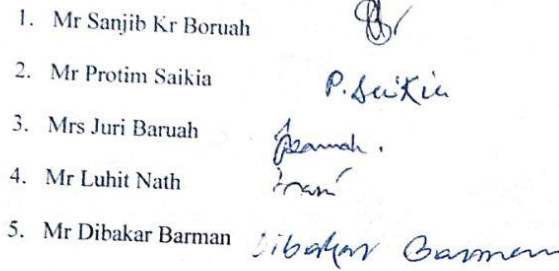 1. Mr Sanjib Kr Boruah
2. Mr Protim Saikia P. Saikia
3. Mrs Juri Baruah
4. Mr Luhit Nath
5. Mr Dibakar Barman Dibakar Barman